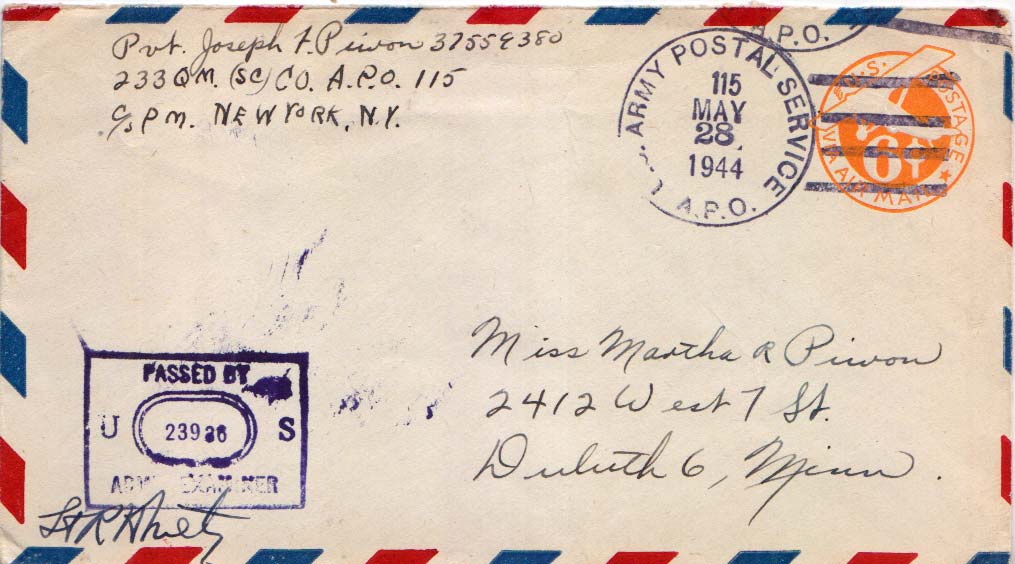 Pvt. Joseph F. Piwon 37559380
233 QM. (SC) CO. A.P.O. 115
C/o PM. NEW YORK, N.Y.
A.P.O.
U.S. ARMY POSTAL SERVICE
115
MAY
28
1944
A.P.O.
U.S. POSTAGE
6¢
VIA AIR MAIL
Miss Martha R Piwon
2412 West 7 St.
Duluth 6, Minn.
PASSED BY
U 23936 S
ARMY EXAMINER